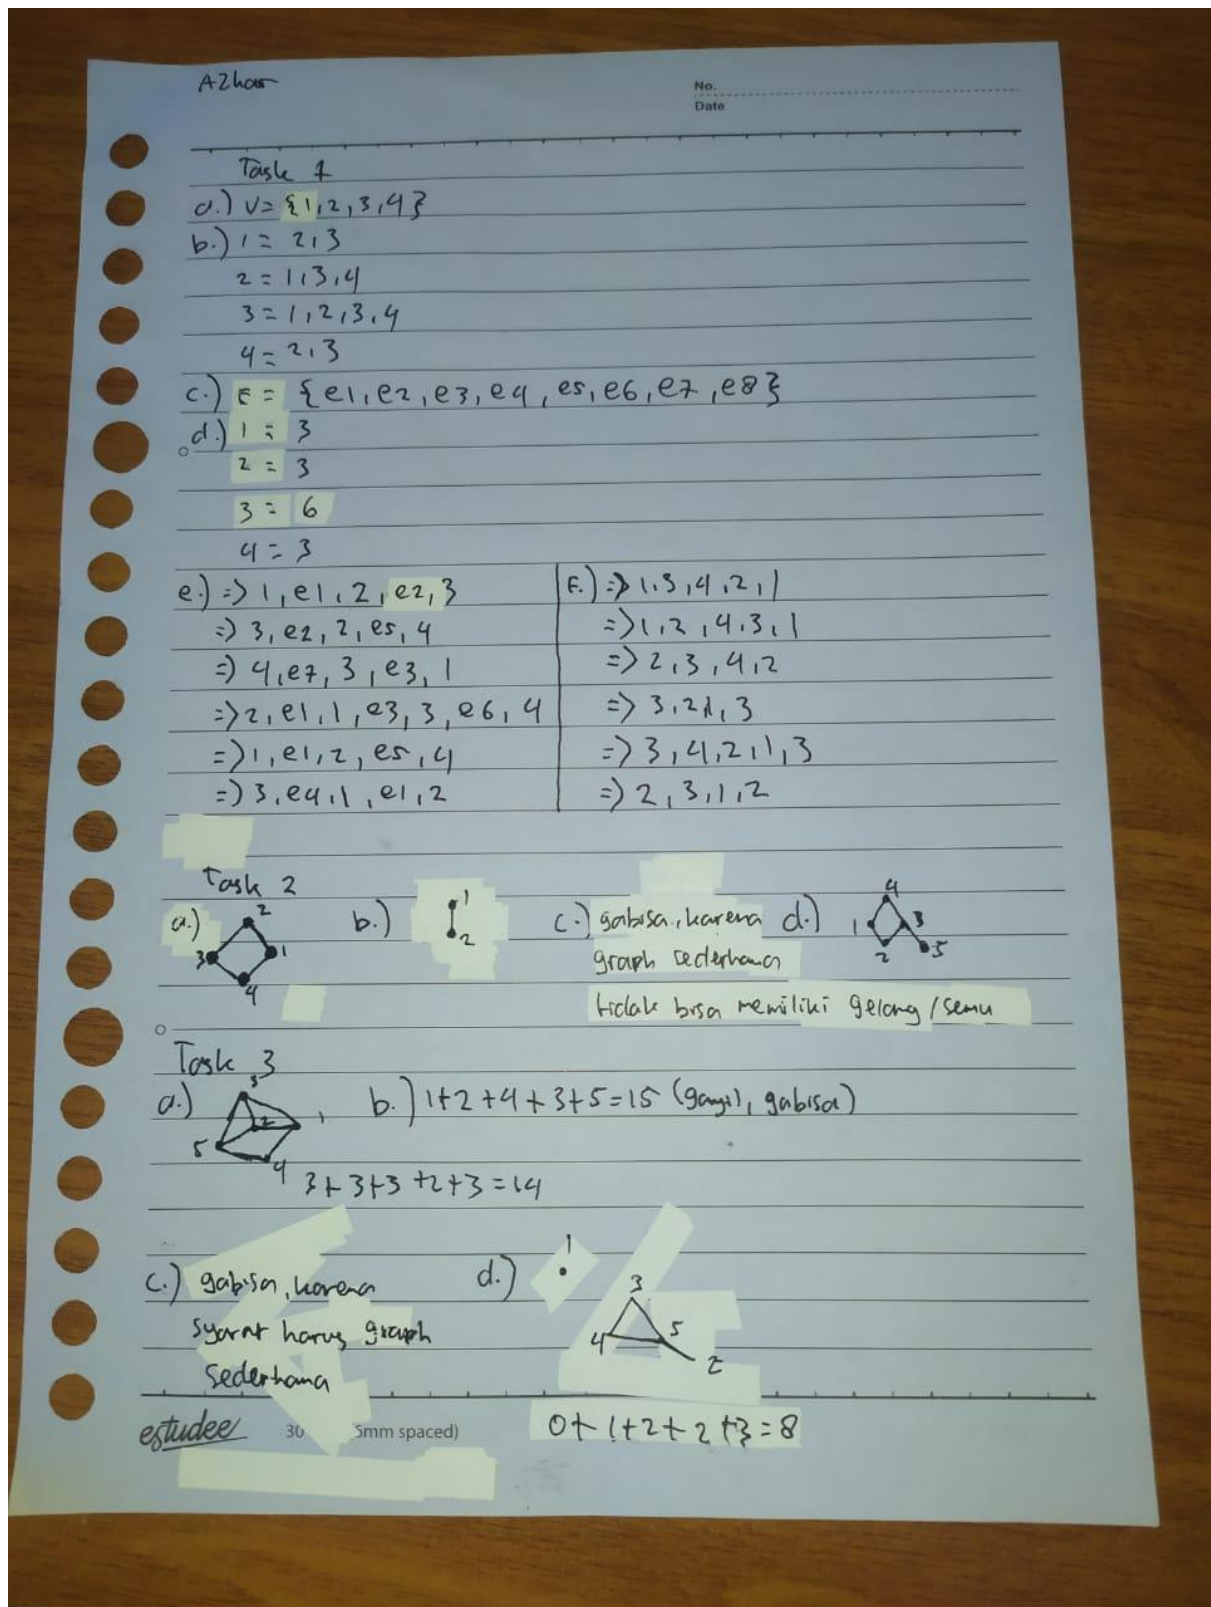 Azhar
No.
Date
Task 1
a.) V= {1,2,3,4}
b.) 1 = 2,3
2 = 1,3,4
3 = 1,2,3,4
4 = 2,3
c.) E = {e1, e2, e3, e4, e5, e6, e7, e8}
d.) 1 = 3
2 = 3
3 = 6
4 = 3
e.) => 1, e1, 2, e2, 3
=> 3, e2, 2, e5, 4
=> 4, e7, 3, e3, 1
=> 2, e1, 1, e3, 3, e6, 4
=> 1, e1, 2, e5, 4
=> 3, e4, 1, e1, 2
F.) => 1,3,4,2,1
=> 1,2,4,3,1
=> 2,3,4,2
=> 3,2,1,3
=> 3,4,2,1,3
=> 2,3,1,2
Task 2
a.) 2 3 1 4
b.) 1 2
c.) gabisa, karena
graph sederhana
tidak bisa memiliki gelang/semu
d.) 4 1 3 2 5
Task 3
a.) 3 2 1 5 4
3+3+3+2+3=14
b.) 1+2+4+3+5=15 (ganjil, gabisa)
c.) gabisa, karena
syarat harus graph
sederhana
d.) 1
3 4 5 2
0+1+2+2+3=8
estudee
30
5mm spaced)